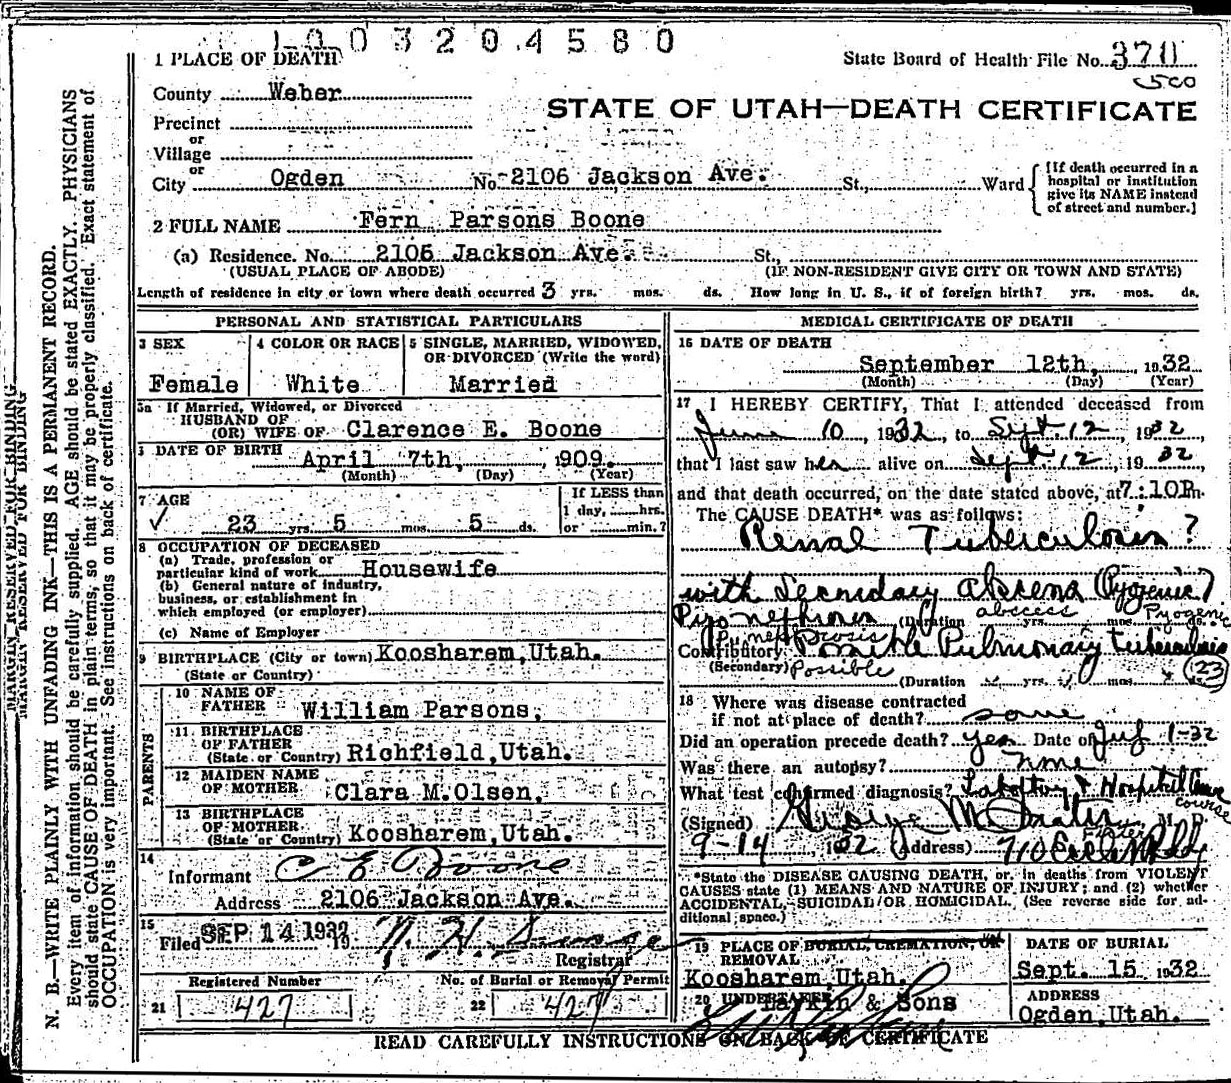 1003204580
1 PLACE OF DEATH
State Board of Health File No. 370
County Weber
500
STATE OF UTAH—DEATH CERTIFICATE
Precinct
or
Village
or
City Ogden No. 2106 Jackson Ave. St., Ward
[If death occurred in a hospital or institution give its NAME instead of street and number.]
2 FULL NAME Fern Parsons Boone
(a) Residence. No. 2106 Jackson Ave. St.,
(USUAL PLACE OF ABODE) (IF NON-RESIDENT GIVE CITY OR TOWN AND STATE)
Length of residence in city or town where death occurred 3 yrs. mos. ds. How long in U. S., if of foreign birth? yrs. mos. ds.
PERSONAL AND STATISTICAL PARTICULARS
3 SEX 4 COLOR OR RACE 5 SINGLE, MARRIED, WIDOWED, OR DIVORCED (Write the word)
Female White Married
5a If Married, Widowed, or Divorced
HUSBAND OF
(OR) WIFE OF Clarence E. Boone
6 DATE OF BIRTH April 7th, 1909.
(Month) (Day) (Year)
7 AGE
If LESS than
1 day, hrs.
or min.?
✓ 23 yrs. 5 mos. 5 ds.
8 OCCUPATION OF DECEASED
(a) Trade, profession or
particular kind of work Housewife
(b) General nature of industry,
business, or establishment in
which employed (or employer)
(c) Name of Employer
9 BIRTHPLACE (City or town) Koosharem, Utah.
(State or Country)
PARENTS
10 NAME OF
FATHER William Parsons,
11. BIRTHPLACE
OF FATHER
(State or Country) Richfield, Utah.
12 MAIDEN NAME
OF MOTHER Clara M. Olsen,
13 BIRTHPLACE
OF MOTHER
(State or Country) Koosharem, Utah.
14
Informant C E Boone
Address 2106 Jackson Ave.
15
Filed SEP 14 1932 19
Registrar
Registered Number No. of Burial or Removal Permit
21 427 22 427
MEDICAL CERTIFICATE OF DEATH
16 DATE OF DEATH
September 12th, 1932
(Month) (Day) (Year)
17 I HEREBY CERTIFY, That I attended deceased from
June 10, 1932, to Sept. 12, 1932
that I last saw her alive on Sept. 12, 1932
and that death occurred, on the date stated above, at 7:10P.m.
The CAUSE DEATH* was as follows:
Renal Tuberculosis?
with Secondary abscess (Pyogenic)
abscess Pyogenic
Pyonephrosis (Duration yrs. mos. ds.
Pyonephrosis
Contributory Possible Pulmonary tuberculosis
(Secondary) Possible
(23)
(Duration yrs. mos.
18 Where was disease contracted
if not at place of death? same
Did an operation precede death? yes Date of July 1-32
Was there an autopsy? none
What test confirmed diagnosis? Laboratory & Hospital
course
(Signed) George M M. D.
Fister
9-14, 1932 (Address) 710 Eccles Bldg
*State the DISEASE CAUSING DEATH, or, in deaths from VIOLENT
CAUSES state (1) MEANS AND NATURE OF INJURY; and (2) whether
ACCIDENTAL, SUICIDAL OR HOMICIDAL. (See reverse side for ad-
ditional space.)
19 PLACE OF BURIAL, CREMATION, OR
REMOVAL
Koosharem, Utah.
DATE OF BURIAL
Sept. 15 1932
20 UNDERTAKER
Larkin & Sons
ADDRESS
Ogden, Utah.
READ CAREFULLY INSTRUCTIONS ON BACK OF CERTIFICATE
MARGIN RESERVED FOR BINDING
MARGIN RESERVED FOR BINDING
N. B.—WRITE PLAINLY WITH UNFADING INK—THIS IS A PERMANENT RECORD.
Every item of information should be carefully supplied. AGE should be stated EXACTLY. PHYSICIANS
should state CAUSE OF DEATH in plain terms, so that it may be properly classified. Exact statement of
OCCUPATION is very important. See instructions on back of certificate.